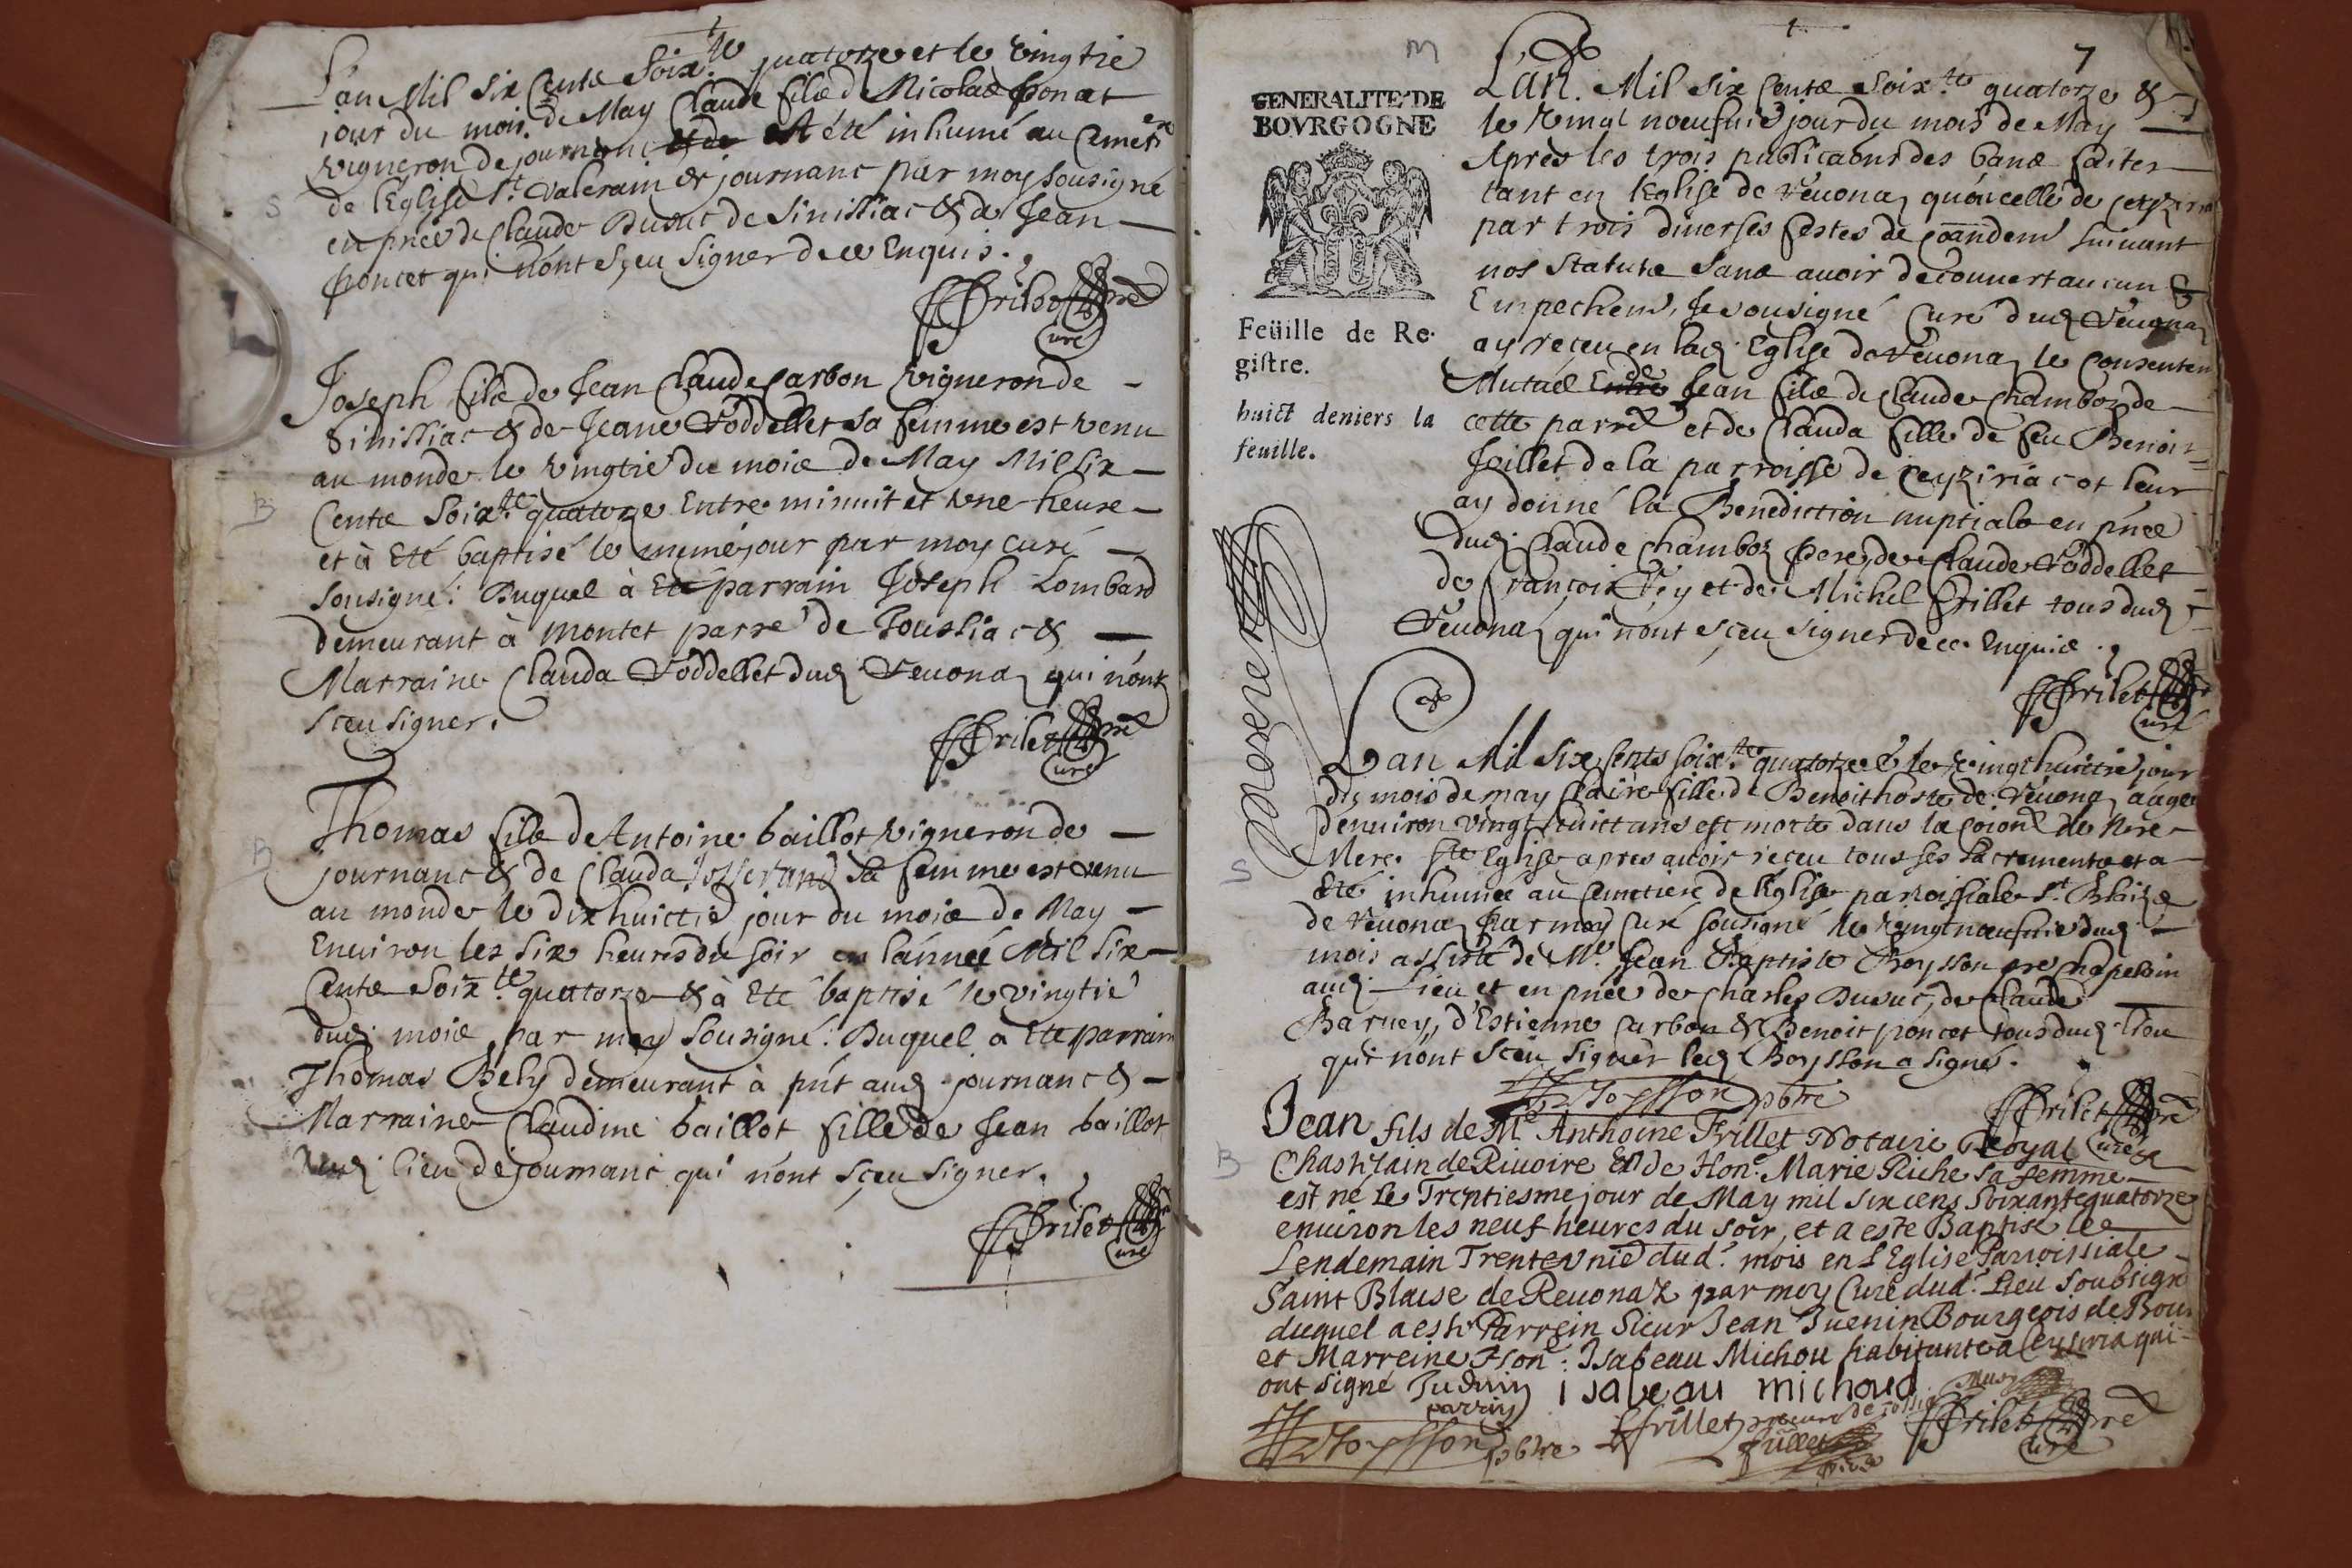 L'an Mil six Cents Soix.te quatorze et le vingtie
jour du mois de May Claude fils d Nicolas Ponat
vigneron de journanc et de At été inhumé au Cimetr
de leglise St. valerain de journanc par moy sousigné
S
en pñce de Claude Buduc de Sinissiac & de Jean
poncet qui nont sçeu signer de ce Enquis.
ffrilet pre
Curé
Joseph fils de Jean Claude Carbon vigneron de
Sinissiac & de Jeane Voddellet sa femme est venu
au monde le vingtie du mois de May Mil six
B
Cents Soix.te quatorze Entre minuit et une heure
et à Eté baptisé le meme jour par moy curé
sousigné: Duquel à Eté parrain Joseph Lombard
demeurant à montet parre de Toussiac &
Marraine Clauda Voddellet dud Reuonaz qui nont
sceu signer.
ffrilet pre
Curé
Thomas fils de Antoine baillot vigneron de
B
journanc & de Clauda Josserand sa femme est venu
au monde le dix huictie jour du mois de May
Enuiron les six heures du soir en lannée Mil six
Cents Soix.te quatorze & à Eté baptisé le vingtie
dud mois par moy sousigné: Duquel à Eté parrain
Thomas Bely demeurant à pnt aud journanc &
Marraine Claudine baillot fille de Jean baillot
dud lieu de journanc qui nont sçeu signer.
ffrilet pre
Curé
7
M
GENERALITE' DE
BOVRGOGNE
Feüille de Re-
gistre.
huict deniers la
feuille.
L'an. Mil six Cents Soix.te quatorze &
le vingt noeufuie jour du mois de May
Apres les trois publicaōns des bans faites
tant en leglise de Reuonaz quen celle de Ceyziria
par trois diuerses festes de coāndem suiuant
nos statuts sans auoir decouuert aucun
Empechem, Je sousigné Curé dud Reuonaz
ay receu en lad Eglise de Reuonaz le Consentem
Mutuel Jean fils de Claude Chamboz de
cette parre et de Clauda fille de feu Benoit
Jeillet de la parroisse de Ceyziriac et leur
ay donné la Benediction nuptiale en pñce
dud Claude Chamboz pere, de Claude Voddellet
de françois Rey et de Michel Frillet tous dud
Reuonaz qui nont sçeu signer de ce Enquis.
ffrilet pre
Curé
Lan Mil Six Cents soix.te quatorze & le vingt huictie jour
du mois de may Claire fille de Benoit hoste de Reuonaz aagee
denuiron vingt huict ans est morte dans la coion de Nre
Mere Ste Eglise apres auoir receu tous ses sacrements et a
S
Eté inhumée au Cimetiere de leglise parroissiale St. Blaize
de Reuonaz par moy Curé sousigné le vingt noeufuie dud
mois assisté de Mre Jean Baptiste Boysson pre Chapelain
aud Lieu et en pñce de Charles Buduc, de Claude
Barney, d'Estienne Carbon & Benoit poncet tous dud Lieu
qui nont sceu signer led Boysson a signé.
Boysson pbre
ffrilet pre
Curé
Jean fils de Me Anthoine Frillet Notaire Royal
B
Chastelain de Riuoire Et de Hon: Marie Riche sa femme
est né le Trentiesme jour de May mil six cens soixante quatorze
enuiron les neuf heures du soir, et a esté Baptisé le
Lendemain Trente vnie dud. mois en l'Eglise Parroissiale
Saint Blaise de Reuonaz par moy Curé dud. Lieu soubsigné
duquel a esté Parrein Sieur Jean Juenin Bourgeois de Bour
et Marreine Hon: Isabeau Michou habitante a Ceyziria qui
ont signé Juenin Isabeau michoud
parrin
Boysson pbre
ffrillet
Frillet
ffrilet pre
Curé